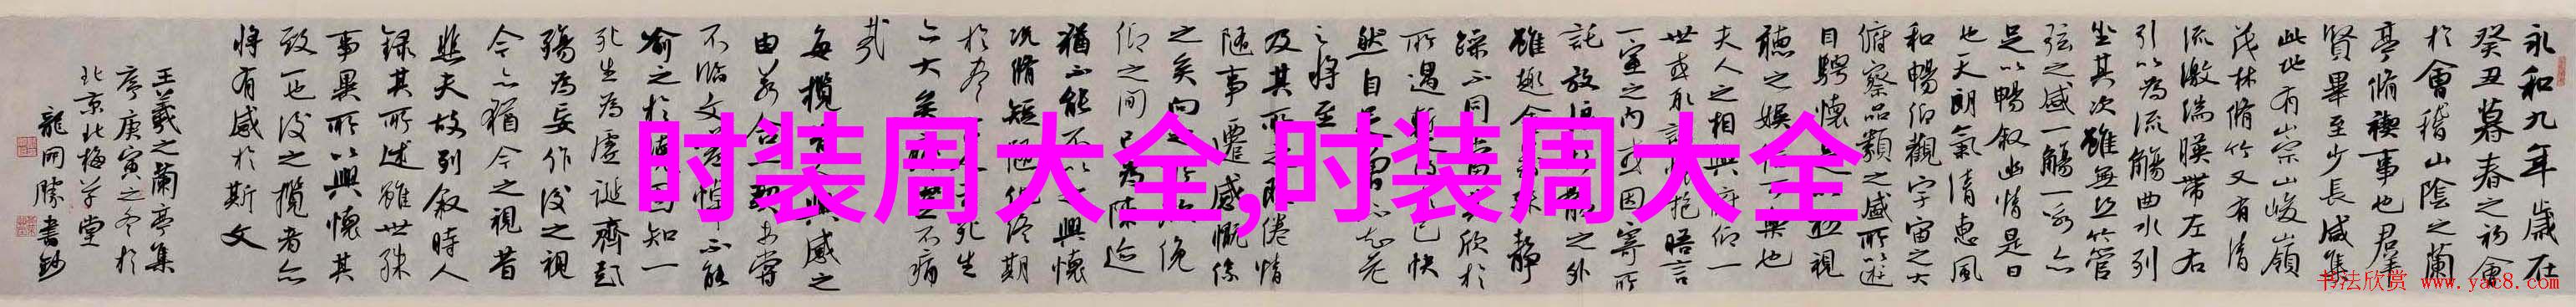 永和九年歲在
癸丑暮春之初會
於會稽山陰之蘭
亭脩禊事也群
賢畢至少長咸集
此地有崇山峻嶺
茂林脩竹又有清
流激湍暎帶左右
引以為流觴曲水列
坐其次雖無絲竹管
弦之盛一觴一詠亦
足以暢敘幽情是日
也天朗氣清惠風
和暢仰觀宇宙之大
俯察品類之盛所以遊
目騁懷足以極視
聽之娛信可樂也
夫人之相與俯仰一
世或取抱晤言
一室之內或因寄所
託放之外
雖趣舍殊靜
躁不同當欣於
所遇己快
然自足曾不知老
之將至
及其所之既倦情
隨事遷感慨係
之矣向之俛
仰之間已為陳迹
猶不能不以之興懷
況脩短隨化終期
於盡死生
亦大矣豈不痛
哉
每攬昔人興感之
由若合一契未嘗
不臨文嗟悼不能
喻之於懷固知一
死生為虛誕齊彭
殤為妄作後之視
今亦猶今之視昔
悲夫故列敘時人
錄其所述雖世殊
事異所以興懷其
致一也後之攬者亦
將有感於斯文
王羲之蘭亭集
序庚寅之冬於
北京北梅草堂
龍開勝書鈔
时装周大全,时装周大全
书法欣赏 www.yac8.com